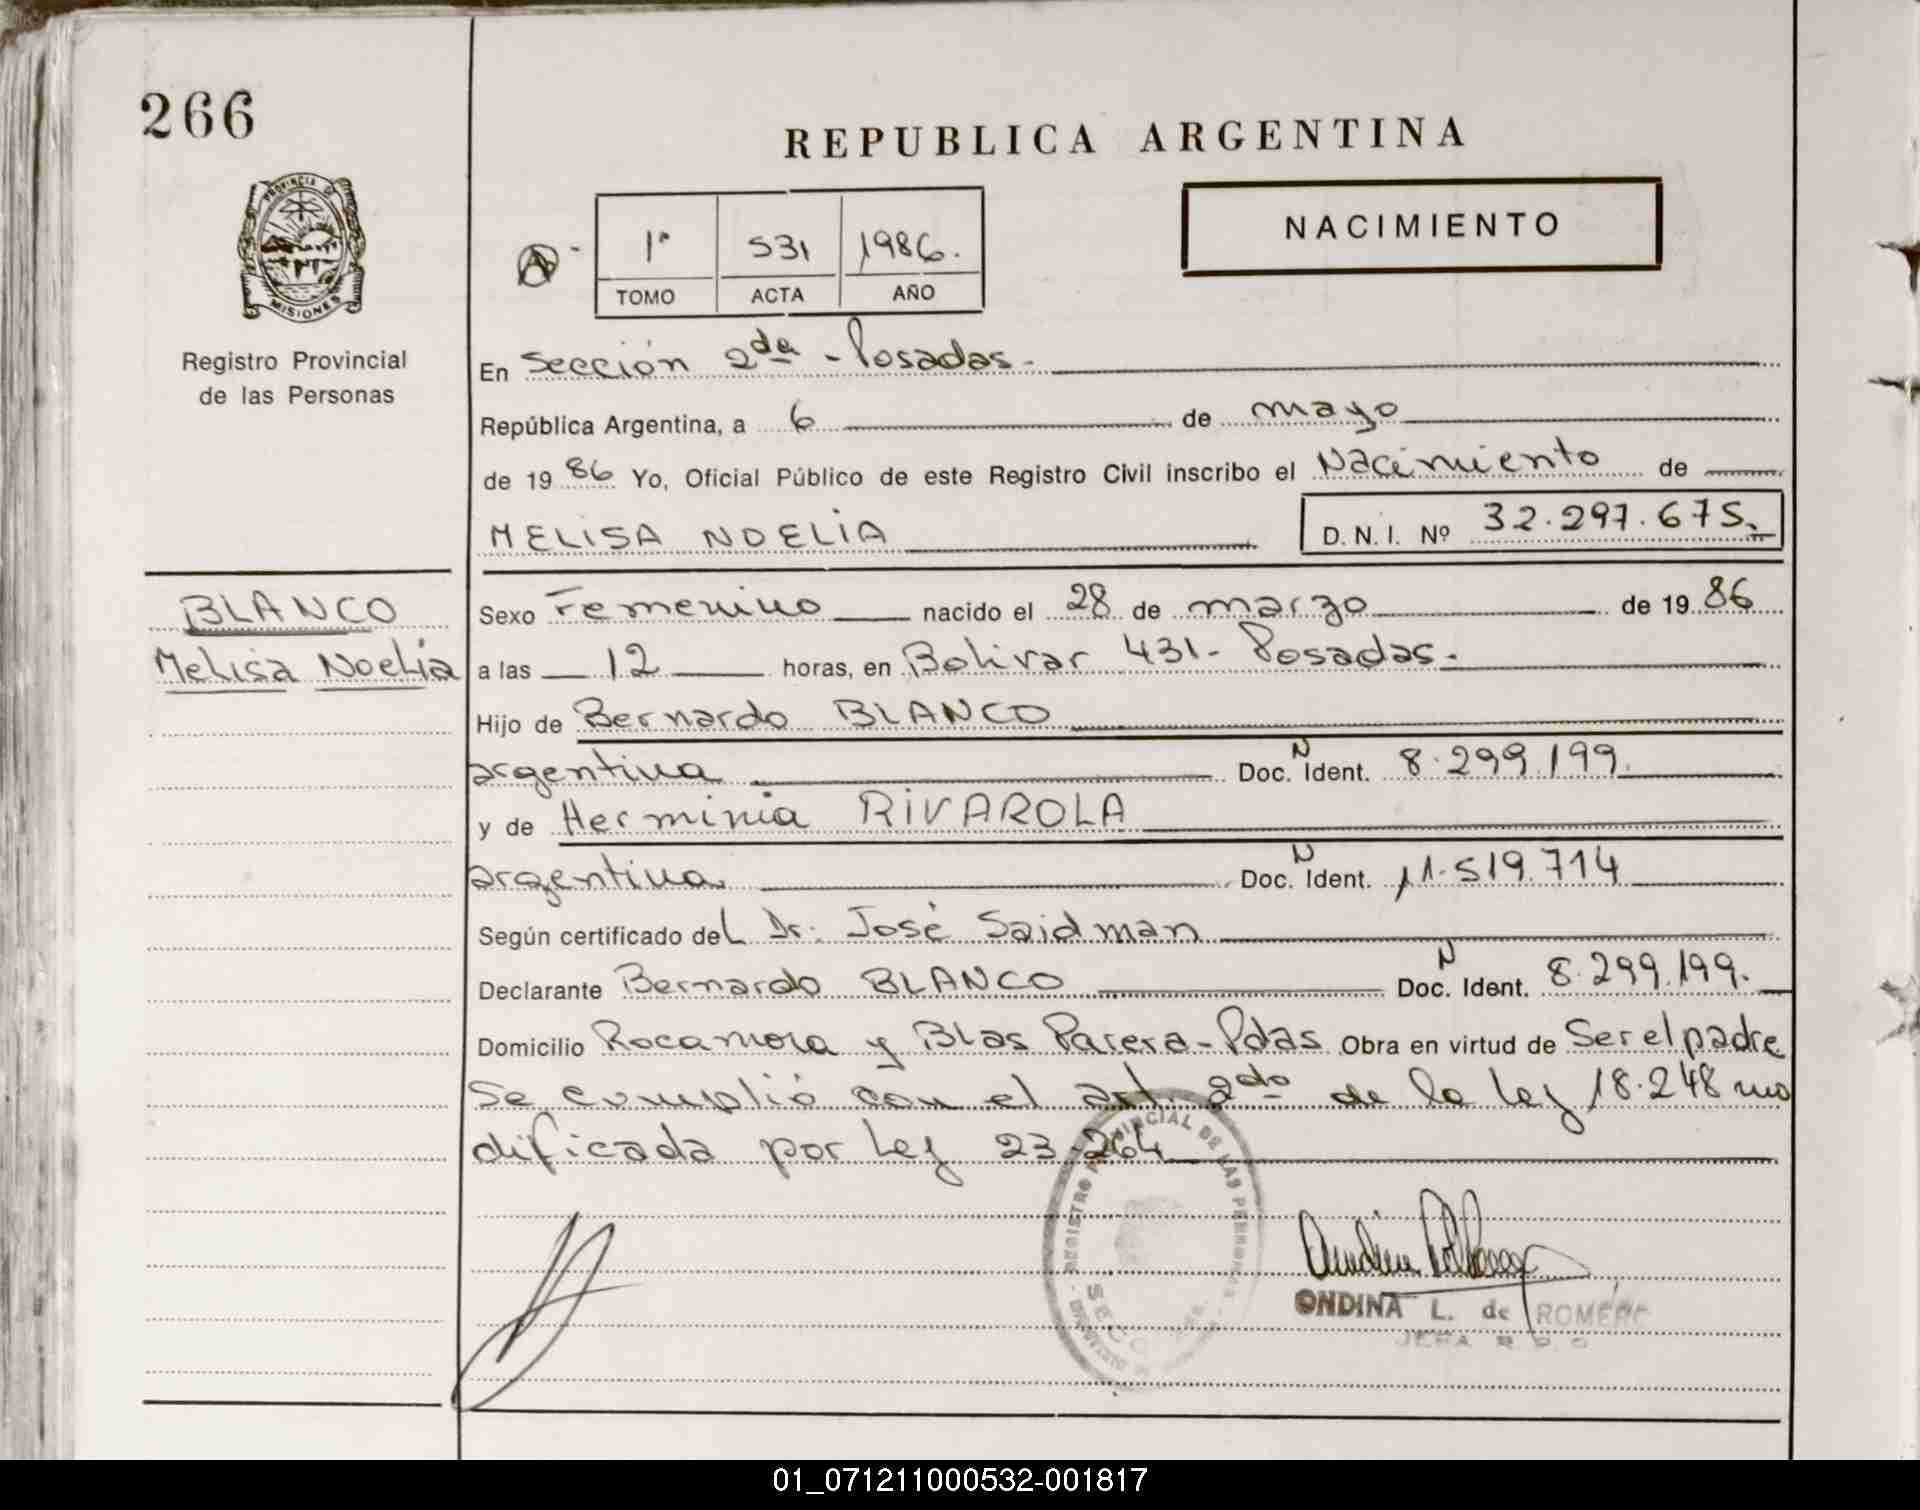 266
REPUBLICA ARGENTINA
PROVINCIA DE
MISIONES
Registro Provincial
de las Personas
A -
1º 531 1986.
TOMO ACTA AÑO
NACIMIENTO
En Sección 2da - Posadas.
República Argentina, a 6 de mayo
de 1986 Yo, Oficial Público de este Registro Civil inscribo el Nacimiento de
MELISA NOELIA D. N. I. Nº 32.297.675.
BLANCO
Melisa Noelia
Sexo Femenino nacido el 28 de marzo de 1986
a las 12 horas, en Bolivar 431 - Posadas.
Hijo de Bernardo BLANCO
argentina Doc. N Ident. 8.299.199.
y de Herminia RIVAROLA
argentina. Doc. N Ident. 11.519.714
Según certificado del Dr. José Saidman
Declarante Bernardo BLANCO Doc. N Ident. 8.299.199.
Domicilio Rocamora y Blas Parera - Pdas Obra en virtud de Ser el padre
Se cumplió con el art. 2do de la Ley 18.248 mo
dificada por Ley 23.264
REGISTRO PROVINCIAL DE LAS PERSONAS
ONDINA L. de ROMERO
JEFA R. P.
01_071211000532-001817